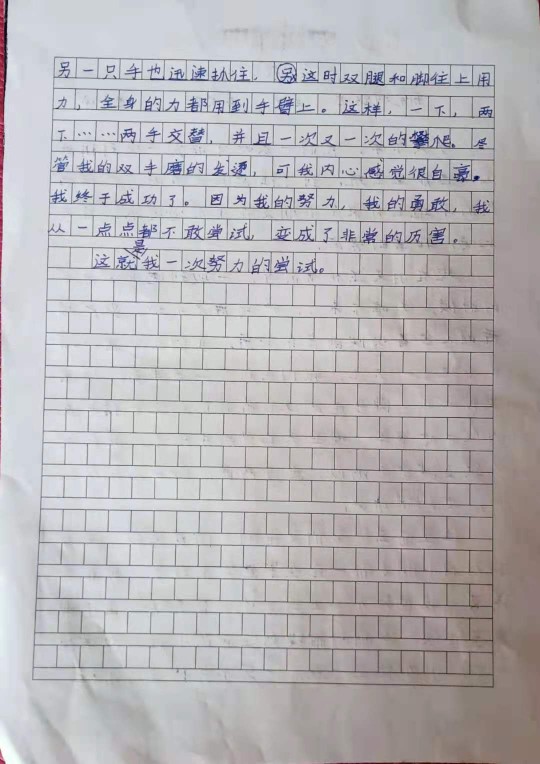 另一只手也迅速抓住，这时双腿和脚往上用
力，全身的力都用到手臂上。这样，一下，两
下……两手交替，并且一次又一次的攀爬。尽
管我的双手磨的发烫，可我内心感觉很自豪。
我终于成功了。因为我的努力，我的勇敢，我
从一点点都不敢尝试，变成了非常的厉害。
这就是我一次努力的尝试。